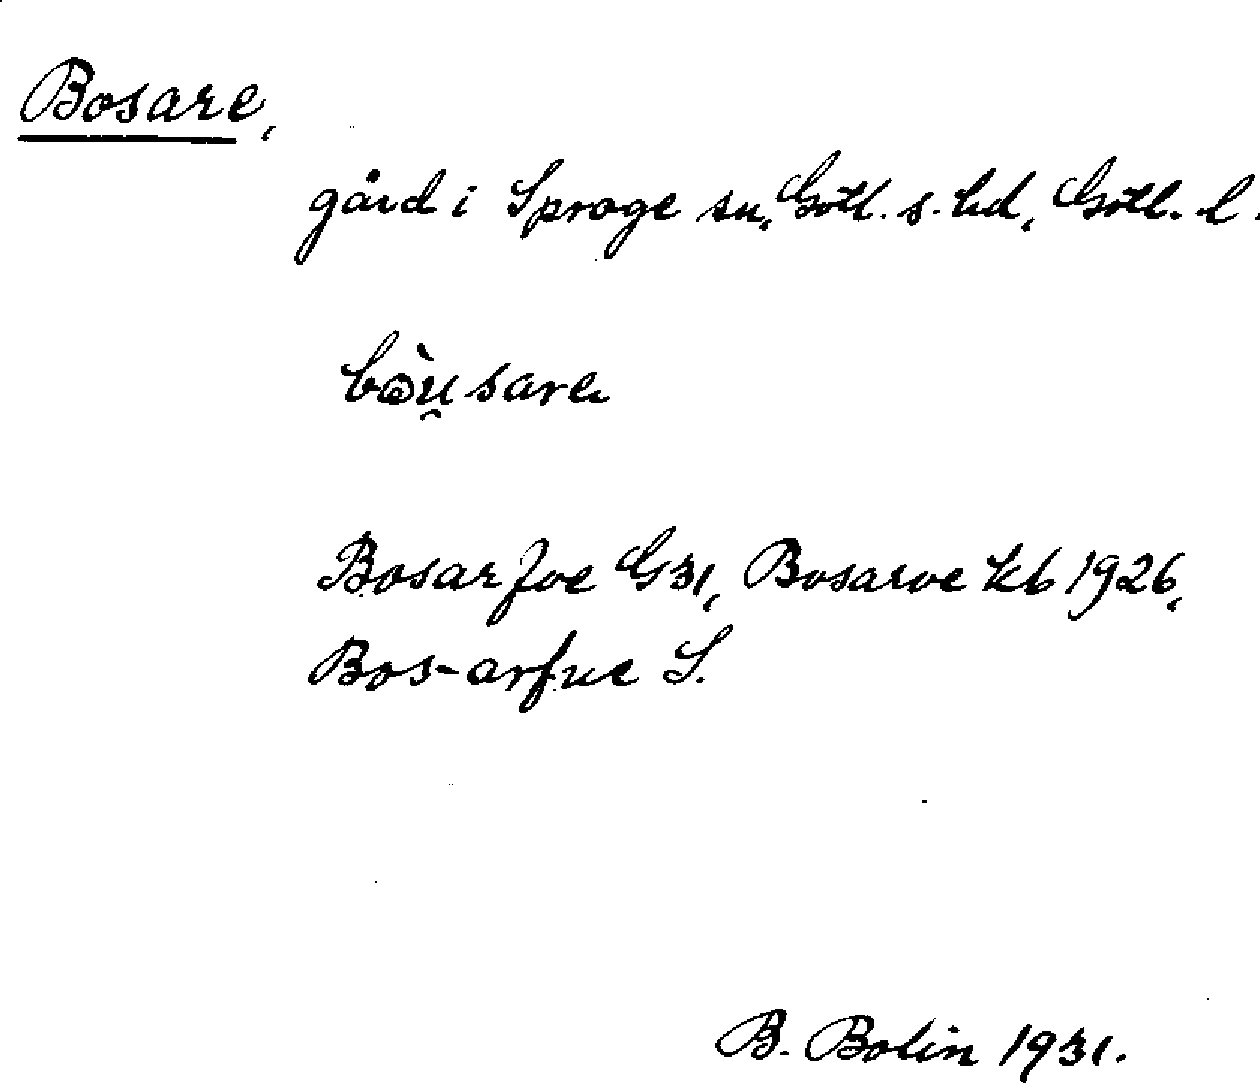 Bosare,
gård i Sproge sn, Gotl. s. hd, Gotl. l.
bɷ̀u̯sare
Bosarfve G31, Bosarve kb 1926,
Bos-arfue S.
B. Bolin 1931.